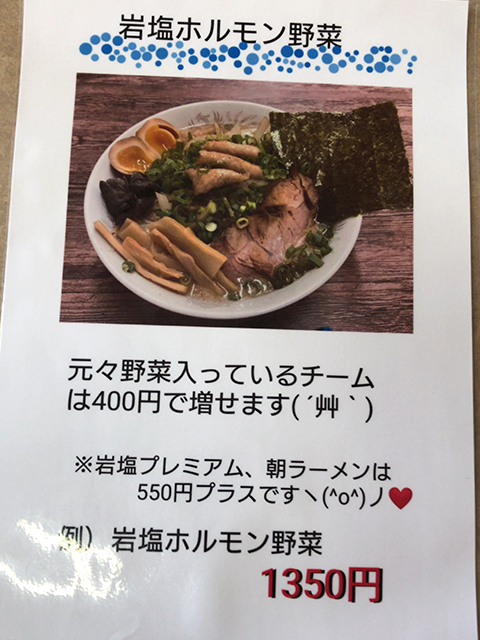 岩塩ホルモン野菜
元々野菜入っているチーム
は400円で増せます( ´艸｀)
※岩塩プレミアム、朝ラーメンは
550円プラスですヽ(^o^)丿❤
例）岩塩ホルモン野菜
1350円